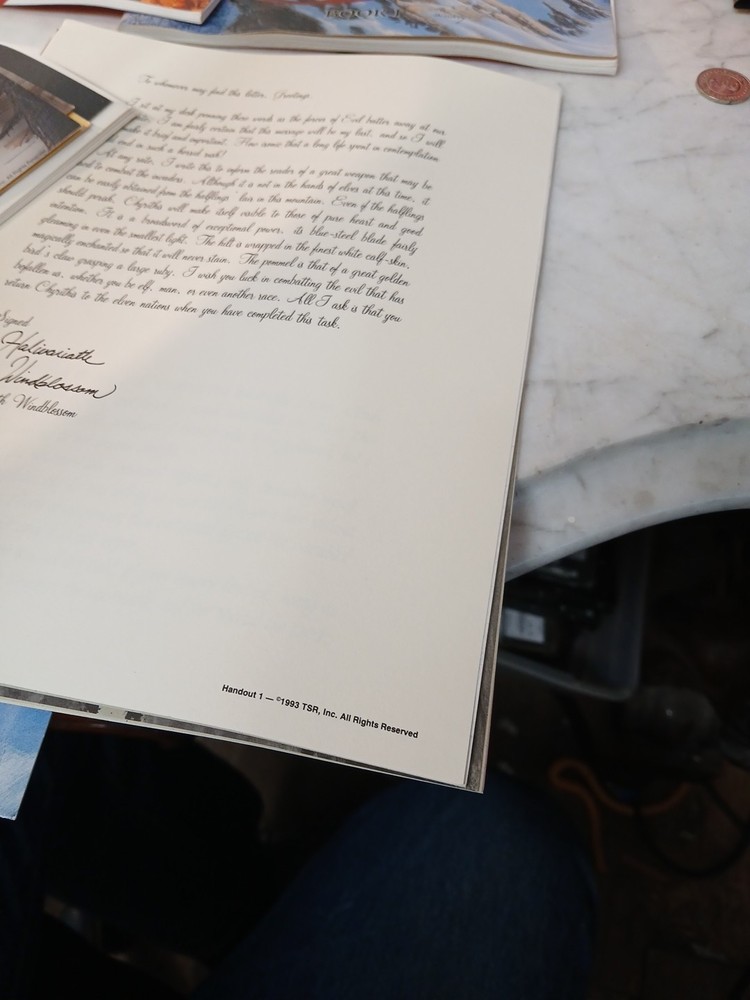 BOOK 1
To whomever may find this letter, Greetings.
I sit at my desk penning these words as the forces of Evil batter away at our
I am fairly certain that this message will be my last, and so I will
make it brief and important. How comes that a long life spent in contemplation
end in such a horrid rush?
At any rate, I write this to inform the reader of a great weapon that may be
to combat the invaders. Although it is not in the hands of elves at this time, it
can be easily obtained from the halflings' lair in the mountain. Even if the halflings
should perish, Chyrithis will make itself visible to those of pure heart and good
intention. It is a broadsword of exceptional power, its blue-steel blade fairly
gleaming in even the smallest light. The hilt is wrapped in the finest white calf-skin,
magically enchanted so that it will never stain. The pommel is that of a great golden
bird's claw grasping a large ruby. I wish you luck in combatting the evil that has
befallen us, whether you be elf, man, or even another race. All I ask is that you
return Chyrithis to the elven nations when you have completed this task.
Signed
Halivariath
Windblossom
th Windblossom
Handout 1 — ©1993 TSR, Inc. All Rights Reserved